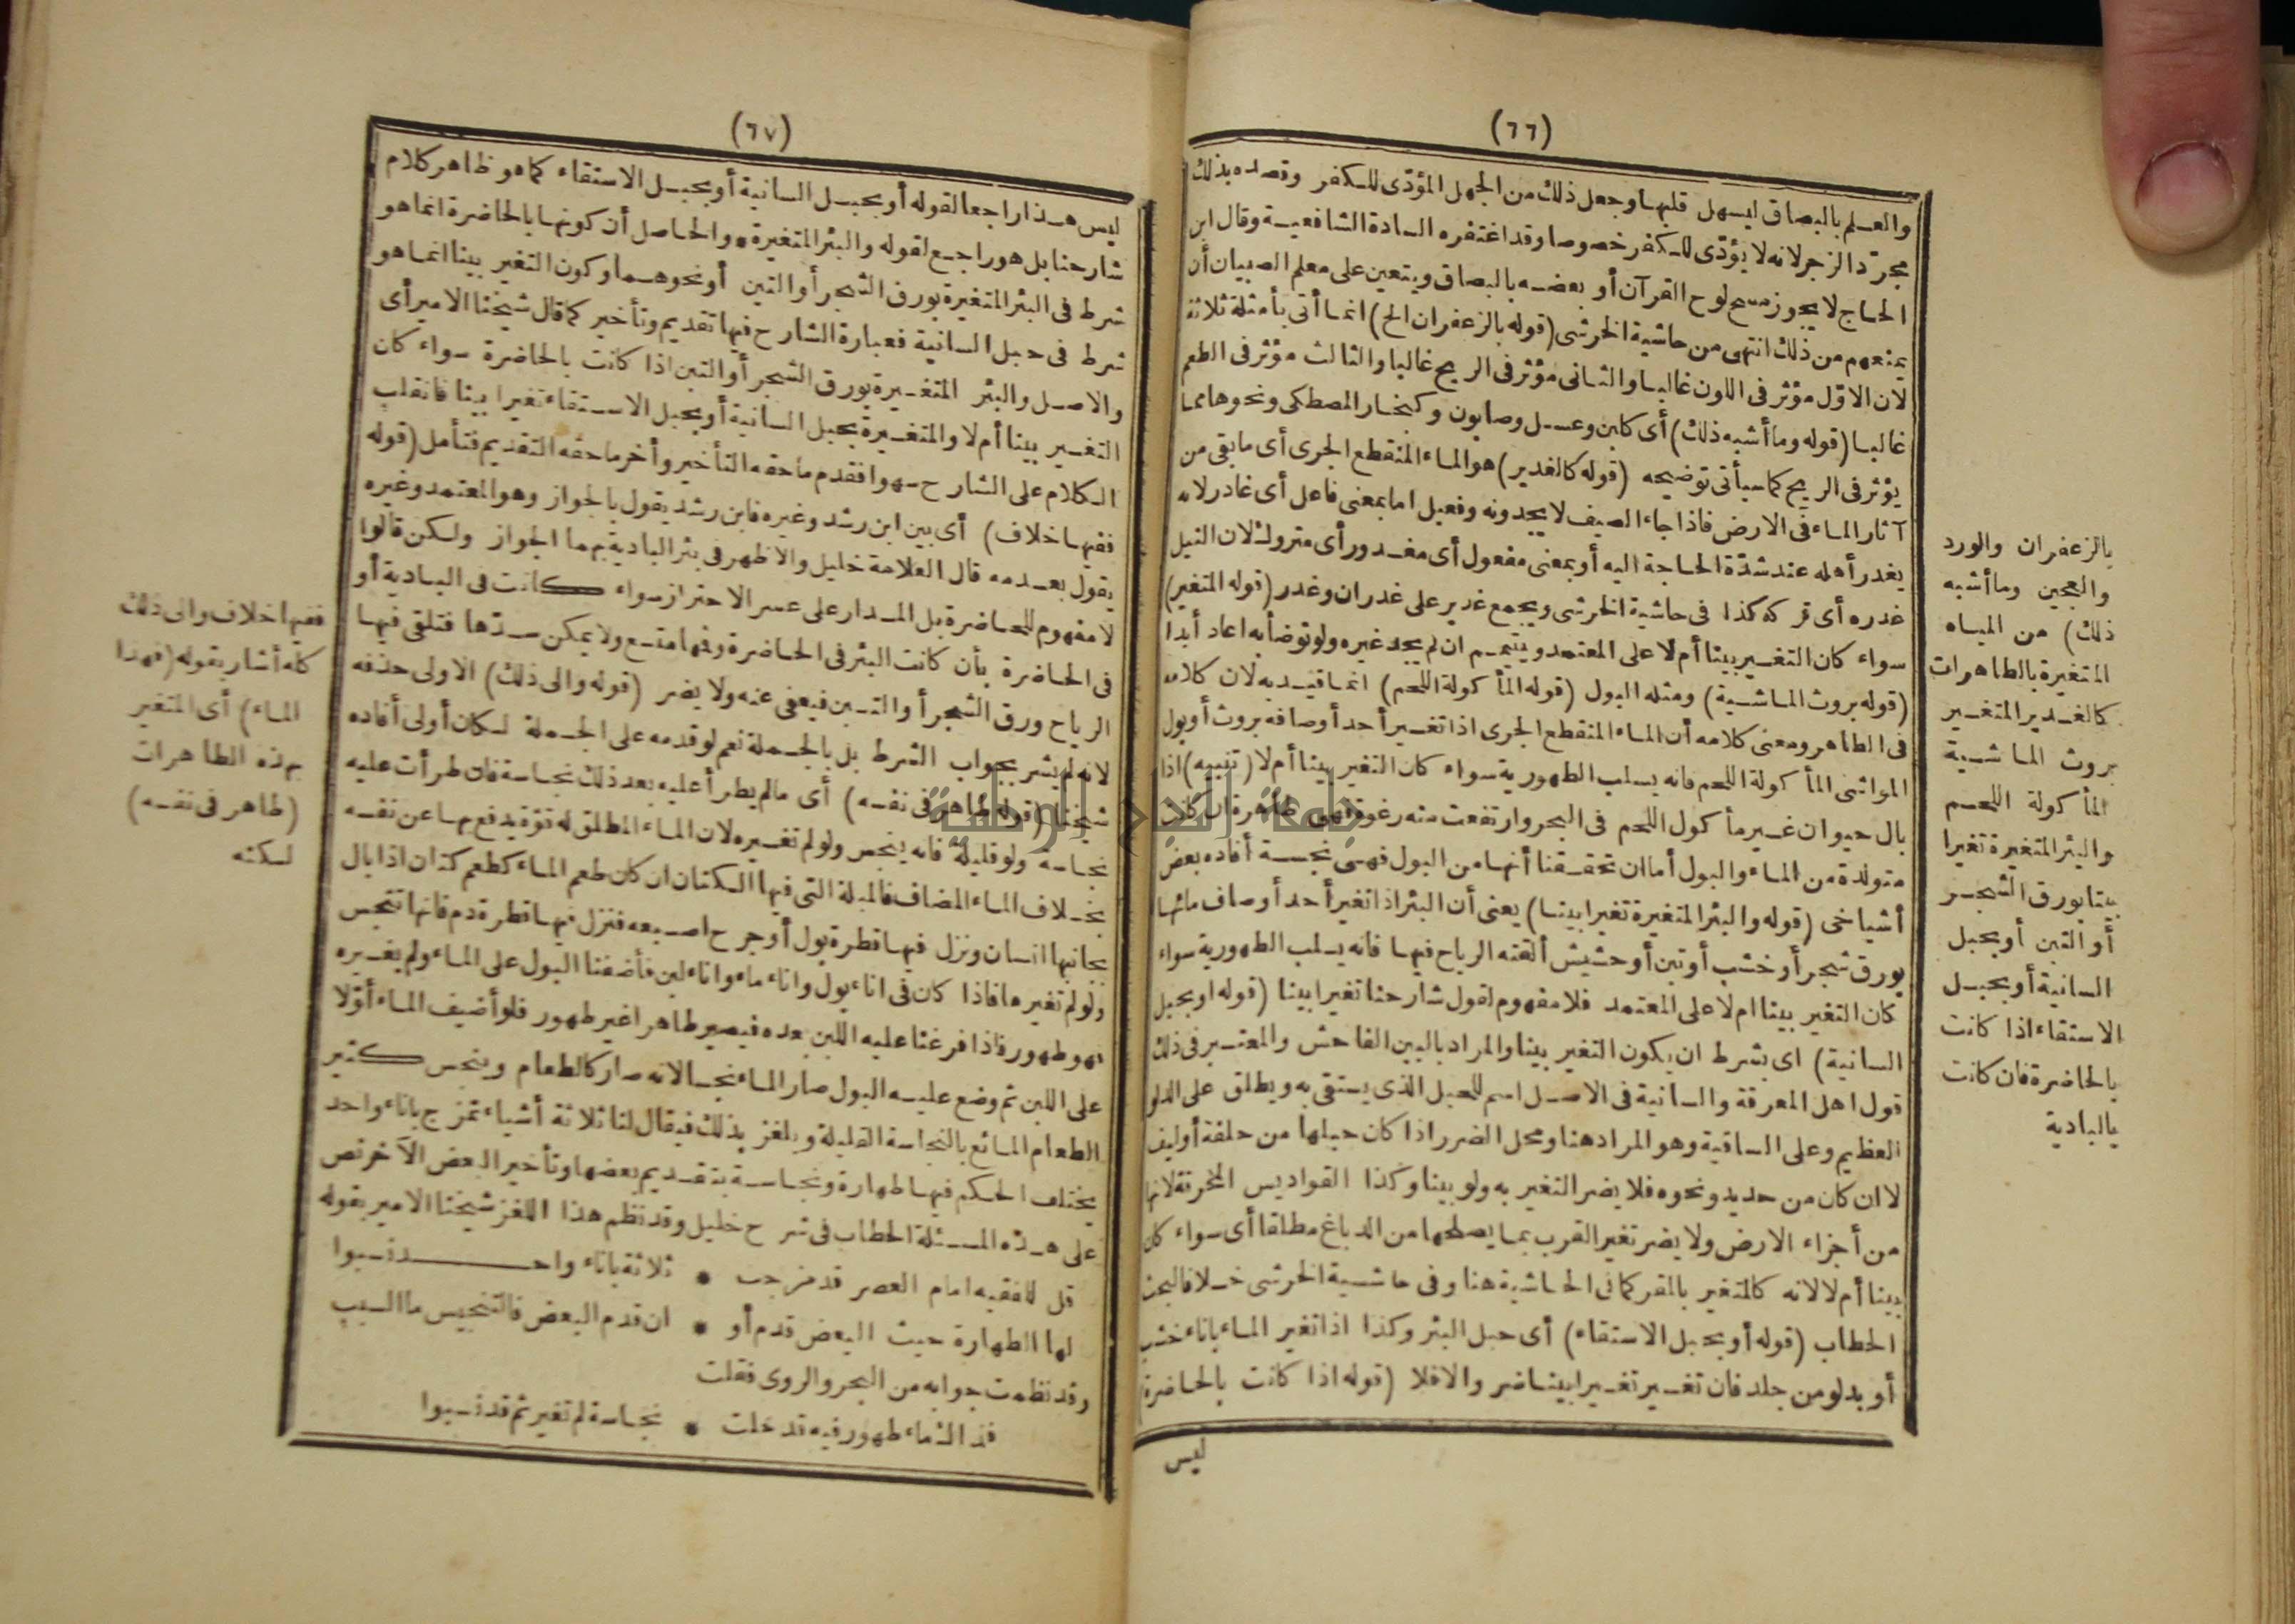 (٦٦)
والعلم بالبصاق ليسهل قلبها وجعل ذلك من الجهل المؤدّى للكفر وقصده بذلك
مجرّد الزجر لانه لا يؤدّى للكفر خصوصا وقد اغتفره السادة الشافعية وقال ابن
الحاج لا يجوز مسح لوح القرآن أو بعضه بالبصاق ويتعين على معلم الصبيان أن
يمنعهم من ذلك انتهى من حاشية الخرشى (قوله بالزعفران الخ) انما أتى بأمثلة ثلاثة
لان الاوّل مؤثر فى اللون غالبا والثانى مؤثر فى الريح غالبا والثالث مؤثر فى الطعم
غالبا (قوله وما أشبه ذلك) أى كلبن وعسل وصابون وكبخار المصطكى ونحوها مما
يؤثر فى الريح كما سيأتى توضيحه (قوله كالغدير) هو الماء المنقطع الجرى أى ما بقى من
آثار الماء فى الارض فاذا جاء الصيف لا يجدونه وفعيل اما بمعنى فاعل أى غادر لانه
يغدر أهله عند شدّة الحاجة اليه أو بمعنى مفعول أى مغدور أى متروك لان النيل
غدره أى تركه كذا فى حاشية الخرشى ويجمع غدير على غدران وغدر (قوله المتغير)
سواء كان التغير بينا أم لا على المعتمد ويتيمم ان لم يجد غيره ولو توضأ به اعاد أبدا
(قوله بروث الماشية) ومثله البول (قوله المأكولة اللحم) انما قيد به لان كلامه
فى الطاهر ومعنى كلامه أن الماء المنقطع الجرى اذا تغير أحد أوصافه بروث أو بول
المواشى المأكولة اللحم فانه يسلب الطهورية سواء كان التغير بينا أم لا (تنبيه) اذا
بال حيوان غير مأكول اللحم فى البحر وارتفعت منه رغوة فهى طاهرة ان كانت
متولدة من الماء والبول أما ان تحققنا أنها من البول فهى نجسة أفاده بعض
أشياخى (قوله والبئر المتغيرة تغيرا بينا) يعنى أن البئر اذا تغير أحد أوصاف مائها
بورق شجر أو خشب أو تبن أو حشيش ألقته الرياح فيها فانه يسلب الطهورية سواء
كان التغير بينا ام لا على المعتمد فلا مفهوم لقول شارحنا تغيرا بينا (قوله او بحبل
السانية) اى بشرط ان يكون التغير بينا والمراد بالبين الفاحش والمعتبر فى ذلك
قول اهل المعرفة والسانية فى الاصل اسم للحبل الذى يستقى به ويطلق على الدلو
العظيم وعلى الساقية وهو المراد هنا ومحل الضرر اذا كان حبلها من حلفة أو ليف
لا ان كان من حديد ونحوه فلا يضر التغير به ولو بينا وكذا القواديس المحرقة لانها
من أجزاء الارض ولا يضر تغير القرب بما يصلحها من الدباغ مطلقا أى سواء كان
بينا أم لا لانه كالمتغير بالمقر كما فى الحاشية هنا وفى حاشية الخرشى خلافا لبحث
الحطاب (قوله أو بحبل الاستقاء) أى حبل البئر وكذا اذا تغير الماء باناء خشب
أو بدلو من جلد فان تغير تغيرا بينا ضر والا فلا (قوله اذا كانت بالحاضرة
ليس
بالزعفران والورد
والعجين وما أشبه
ذلك) من المياه
المتغيرة بالطاهرات
كالغدير المتغير
بروث الماشية
المأكولة اللحم
والبئر المتغيرة تغيرا
بينا بورق الشجر
أو التبن أو بحبل
السانية أو بحبل
الاستقاء اذا كانت
بالحاضرة فان كانت
بالبادية
(٦٧)
ليس هذا راجعا لقوله أو بحبل السانية أو بحبل الاستقاء كما هو ظاهر كلام
شارحنا بل هو راجع لقوله والبئر المتغيرة * والحاصل أن كونها بالحاضرة انما هو
شرط فى البئر المتغيرة بورق الشجر أو التبن أو نحوهما وكون التغير بينا انما هو
شرط فى حبل السانية فعبارة الشارح فيها تقديم وتأخير كما قال شيخنا الامير أى
والاصل والبئر المتغيرة بورق الشجر أو التبن اذا كانت بالحاضرة سواء كان
التغير بينا أم لا والمتغيرة بحبل السانية أو بحبل الاستقاء تغيرا بينا فانقلب
الكلام على الشارح سهوا فقدم ما حقه التأخير وأخر ما حقه التقديم فتأمل (قوله
ففيها خلاف) أى بين ابن رشد وغيره فابن رشد يقول بالجواز وهو المعتمد وغيره
يقول بعدمه قال العلامة خليل والاظهر فى بئر البادية بهما الجواز ولكن قالوا
لا مفهوم للحاضرة بل المدار على عسر الاحتراز سواء كانت فى البادية أو
فى الحاضرة بأن كانت البئر فى الحاضرة وفمها متسع ولا يمكن سدّها فتلقى فيها
الرياح ورق الشجر أو التبن فيعفى عنه ولا يضر (قوله والى ذلك) الاولى حذفه
لانه لم يشر بجواب الشرط بل بالجملة نعم لو قدمه على الجملة لكان أولى أفاده
شيخنا (قوله طاهر فى نفسه) أى ما لم يطرأ عليه بعد ذلك نجاسة فان طرأت عليه
نجاسه ولو قليلة فانه ينجس ولو لم تغيره لان الماء المطلق له قوّة يدفع بها عن نفسه
بخلاف الماء المضاف فالمبلة التى فيها الكتان ان كان طعم الماء كطعم كتان اذا بال
بجانبها انسان ونزل فيها قطرة بول أو جرح اصبعه فنزل فيها قطرة دم فانها تنجس
ولو لم تغيره ما فاذا كان فى اناء بول واناء ماء واناء لبن فأضفنا البول على الماء ولم يغيره
فهو طهور فاذا فرغنا عليه اللبن بعده فيصير طاهرا غير طهور فلو أضيف الماء أوّلا
على اللبن ثم وضع عليه البول صار الماء نجسا لانه صار كالطعام وينجس كثير
الطعام المائع بالنجاسة القليلة ويلغز بذلك فيقال لنا ثلاثة أشياء تمزج باناء واحد
يختلف الحكم فيها طهارة ونجاسة بتقديم بعضها وتأخير البعض الآخر نص
على هذه المسئلة الحطاب فى شرح خليل وقد نظم هذا اللغز شيخنا الامير بقوله
قل للفقيه امام العصر قد مزجت * ثلاثة باناء واحد نسبوا
لها الطهارة حيث البعض قدم أو * ان قدم البعض فالتنجيس ما السبب
وقد نظمت جوابه من البحر والروى فقلت
فذاك ماء طهور فيه قد خلت * نجاسة لم تغير ثم قد نسبوا
ففيها خلاف والى ذلك
كله أشار بقوله (فهذا
الماء) أى المتغير
بهذه الطاهرات
(طاهر فى نفسه)
لكنه
جامعة النجاح الوطنية